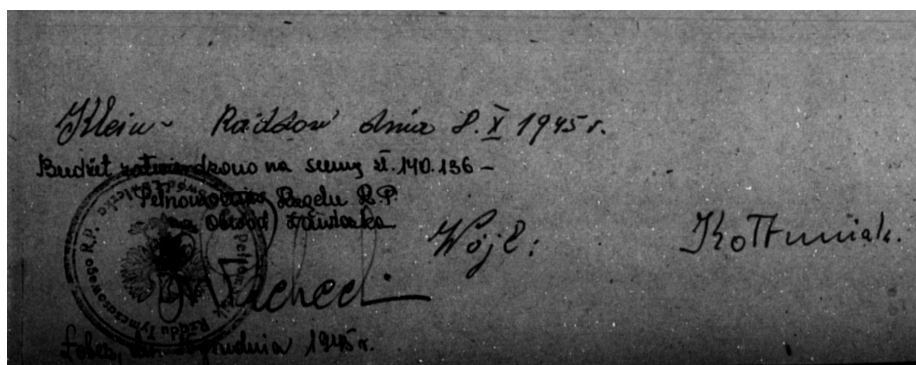 Klein - Raddow dnia 8. X 1945 r.
Budżet zatwierdzono na sumę zł. 140.136 -
Pełnomocnik Rządu R.P.
na Obwód
Wójt: Kołtuniak.
Łobez, dn. grudnia 1945 r.